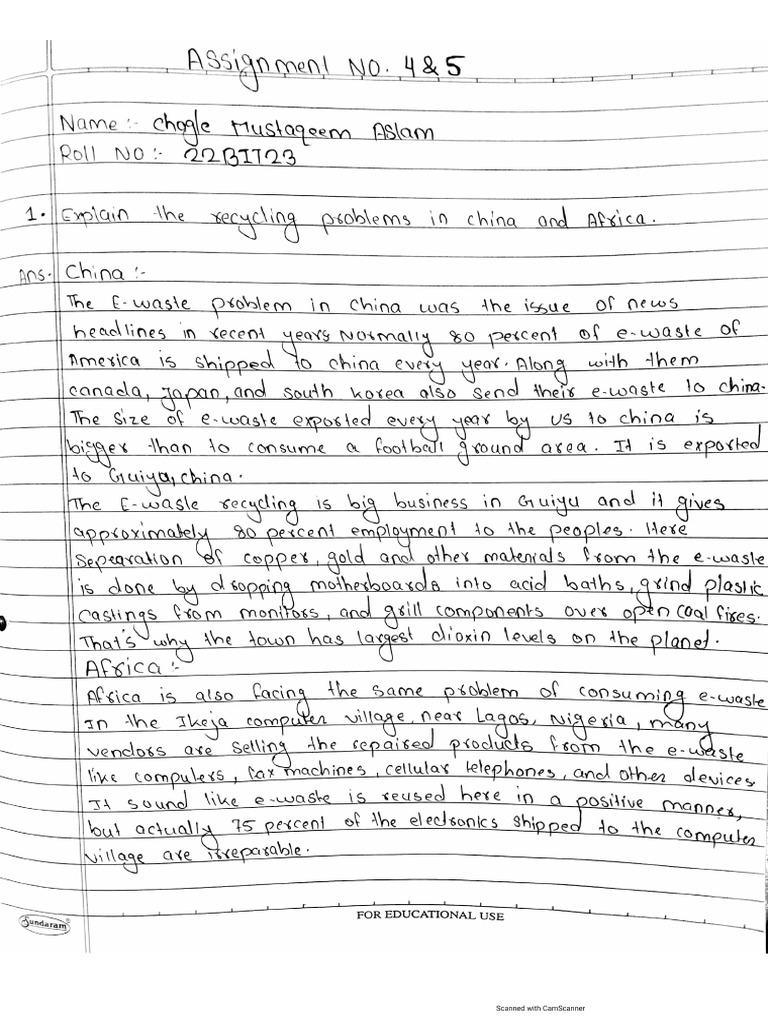 Assignment NO. 4&5
Name :- Chogle Mustaqeem Aslam
Roll NO :- 22BIT23
1. Explain the recycling problems in china and Africa.
Ans. China :-
The E-waste problem in China was the issue of news
headlines in recent years Normally 80 percent of e-waste of
America is shipped to china every year. Along with them
canada, Japan, and south korea also send their e-waste to china.
The size of e-waste exported every year by us to china is
bigger than to consume a football ground area. It is exported
to Guiya, china.
The E-waste recycling is big business in Guiyu and it gives
approximately 80 percent employment to the peoples. Here
Sepearation of copper, gold and other materials from the e-waste
is done by dropping motherboards into acid baths, grind plastic
castings from monitors, and grill components over open coal fires.
That's why the town has largest dioxin levels on the planet.
Africa :-
Africa is also facing the same problem of consuming e-waste
In the Ikeja computer village, near Lagos, Nigeria, many
vendors are selling the repaired products from the e-waste
like computers, fax machines, cellular telephones, and other devices
It sound like e-waste is reused here in a positive manner,
but actually 75 percent of the electronics shipped to the computer
village are irreparable.
Sundaram
FOR EDUCATIONAL USE
Scanned with CamScanner